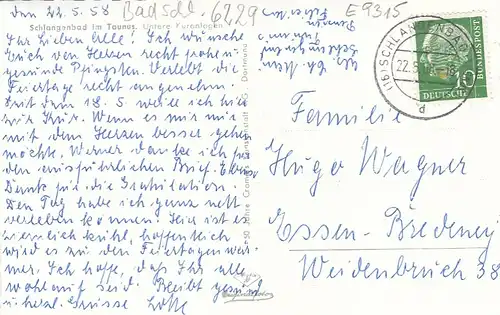 den 22.5.58
Bad Schl. 6229
E9315
Schlangenbad im Taunus. Untere Kuranlagen
Ihr Lieben Alle! Ich wünsche
Euch von Herzen recht frohe u.
gesunde Pfingsten. Verlebt die
Feiertage recht angenehm.
Seit dem 18.5 weile ich hier
zur Kur. Wenn es mir nur
mit dem Herzen besser gehen
möchte. Werner danke ich für
den ausführlichen Brief. Ebso
Dank für die Gratulation.
Den Tag habe ich ganz nett
verleben können. Hier ist es
ziemlich kühl, hoffentlich
wird es zu den Feiertagen wär-
mer. Ich hoffe, daß Ihr alle
wohlauf seid. Bleibt gesund
u. herzl. Grüsse Lotte
Cramers Kunstanstalt KG Dortmund
(16) SCHLANGENBAD
22.5.58
DEUTSCHE BUNDESPOST
10
Familie
Hugo Wagner
Essen-Bredeney
Weidenbruch 38